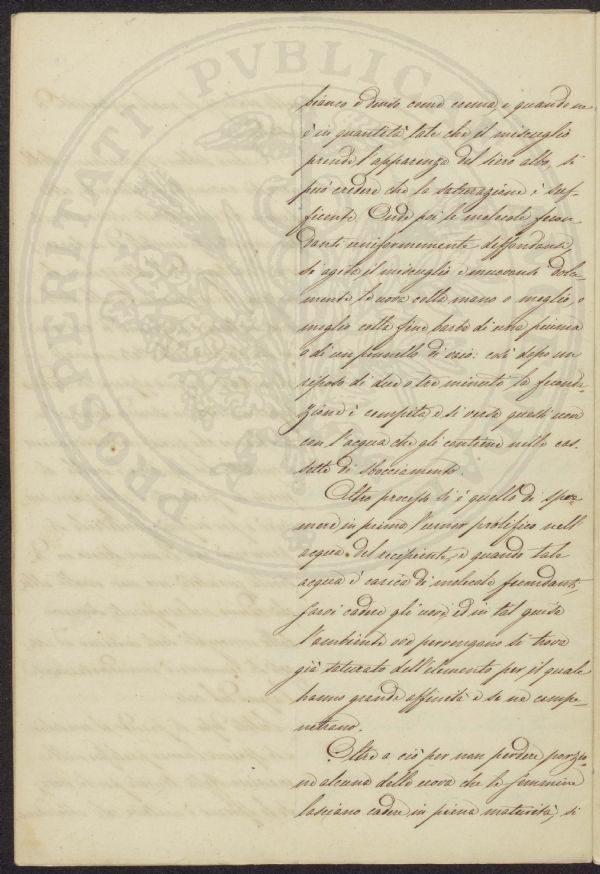 PROSPERITATI PVBLICAE
bianco e denso come crema, e quando ne
è in quantità tale che il miscuglio
prende l'apparenza del siero albo, si
può credere che la saturazione è suf-
ficente. Onde poi le molecole fecon-
danti uniformemente diffondansi,
si agita il miscuglio e muovansi dolce-
mente le uova colla mano o meglio o
meglio colle fine barbe di una piuma
o di un pennello di vaio: così dopo un
riposo di due o tre minuti la feconda-
zione è compita e si versa quelle uova
con l'acqua che gli contiene nelle cas-
sette di sbocciamento.
Altro processo si è quello di spre-
mere in prima l'umor prolifico nell'
acqua del recipiente, e quando tale
acqua è carica di molecole fecondanti,
farvi cadere gli uova, ed in tal guisa
l'ambiente ove pervengono si trova
già saturato dell'elemento per il quale
hanno grande affinità e se ne compe-
netrano.
Oltre a ciò per non perdere porzio-
ne alcuna delle uova che le femmine
lasciano cadere in piena maturità, si